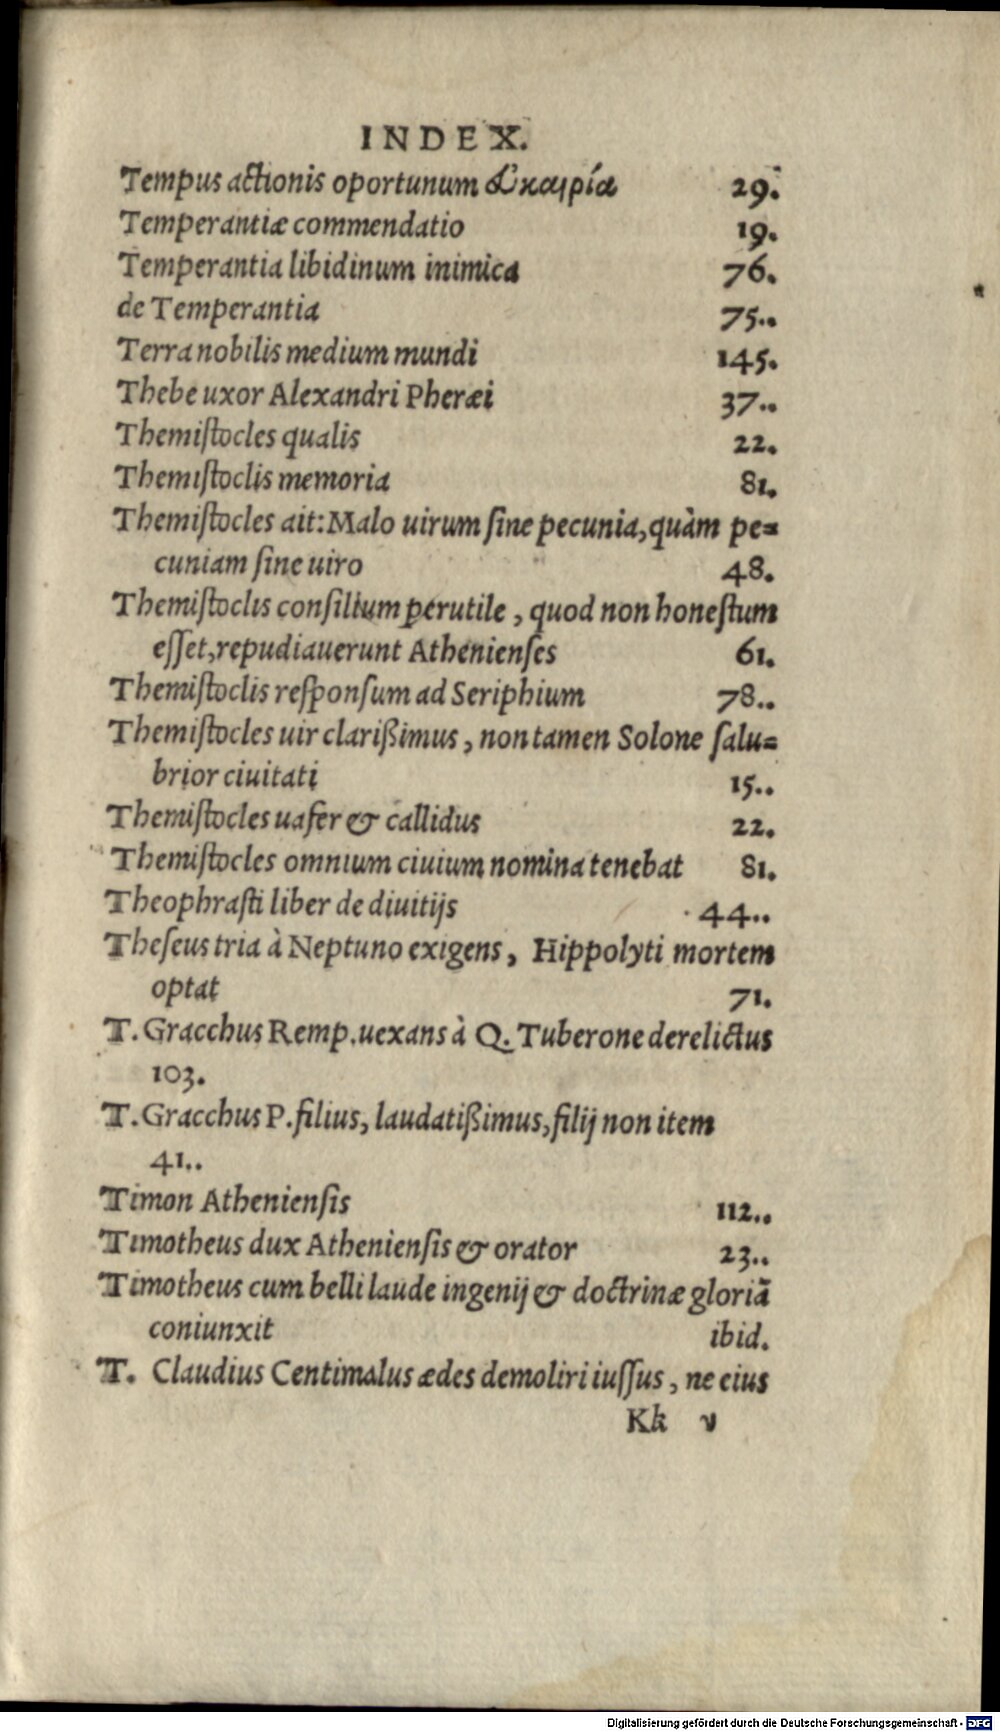 INDEX.
Tempus actionis oportunum ἐυκαιρία 29.
Temperantiæ commendatio 19.
Temperantia libidinum inimica 76.
de Temperantia 75..
Terra nobilis medium mundi 145.
Thebe uxor Alexandri Pheræi 37..
Themiſtocles qualis 22.
Themiſtoclis memoria 81.
Themiſtocles ait: Malo uirum ſine pecunia, quàm pe=
cuniam ſine uiro 48.
Themiſtoclis conſilium perutile, quod non honeſtum
eſſet, repudiauerunt Athenienſes 61.
Themiſtoclis reſponſum ad Seriphium 78..
Themiſtocles uir clarißimus, non tamen Solone ſalu=
brior ciuitati 15..
Themiſtocles uafer & callidus 22.
Themiſtocles omnium ciuium nomina tenebat 81.
Theophraſti liber de diuitijs 44..
Theſeus tria à Neptuno exigens, Hippolyti mortem
optat 71.
T. Gracchus Remp. uexans à Q. Tuberone derelictus
103.
T. Gracchus P. filius, laudatißimus, filij non item
41..
Timon Athenienſis 112..
Timotheus dux Athenienſis & orator 23..
Timotheus cum belli laude ingenij & doctrinæ gloriã
coniunxit ibid.
T. Claudius Centimalus ædes demoliri iuſſus, ne eius
Kk v
Digitalisierung gefördert durch die Deutsche Forschungsgemeinschaft - DFG